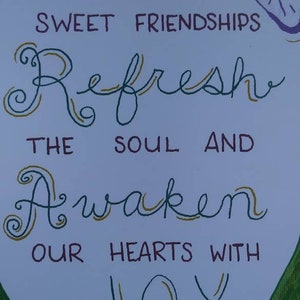 SWEET FRIENDSHIPS
Refresh
THE SOUL AND
Awaken
OUR HEARTS WITH
JOY